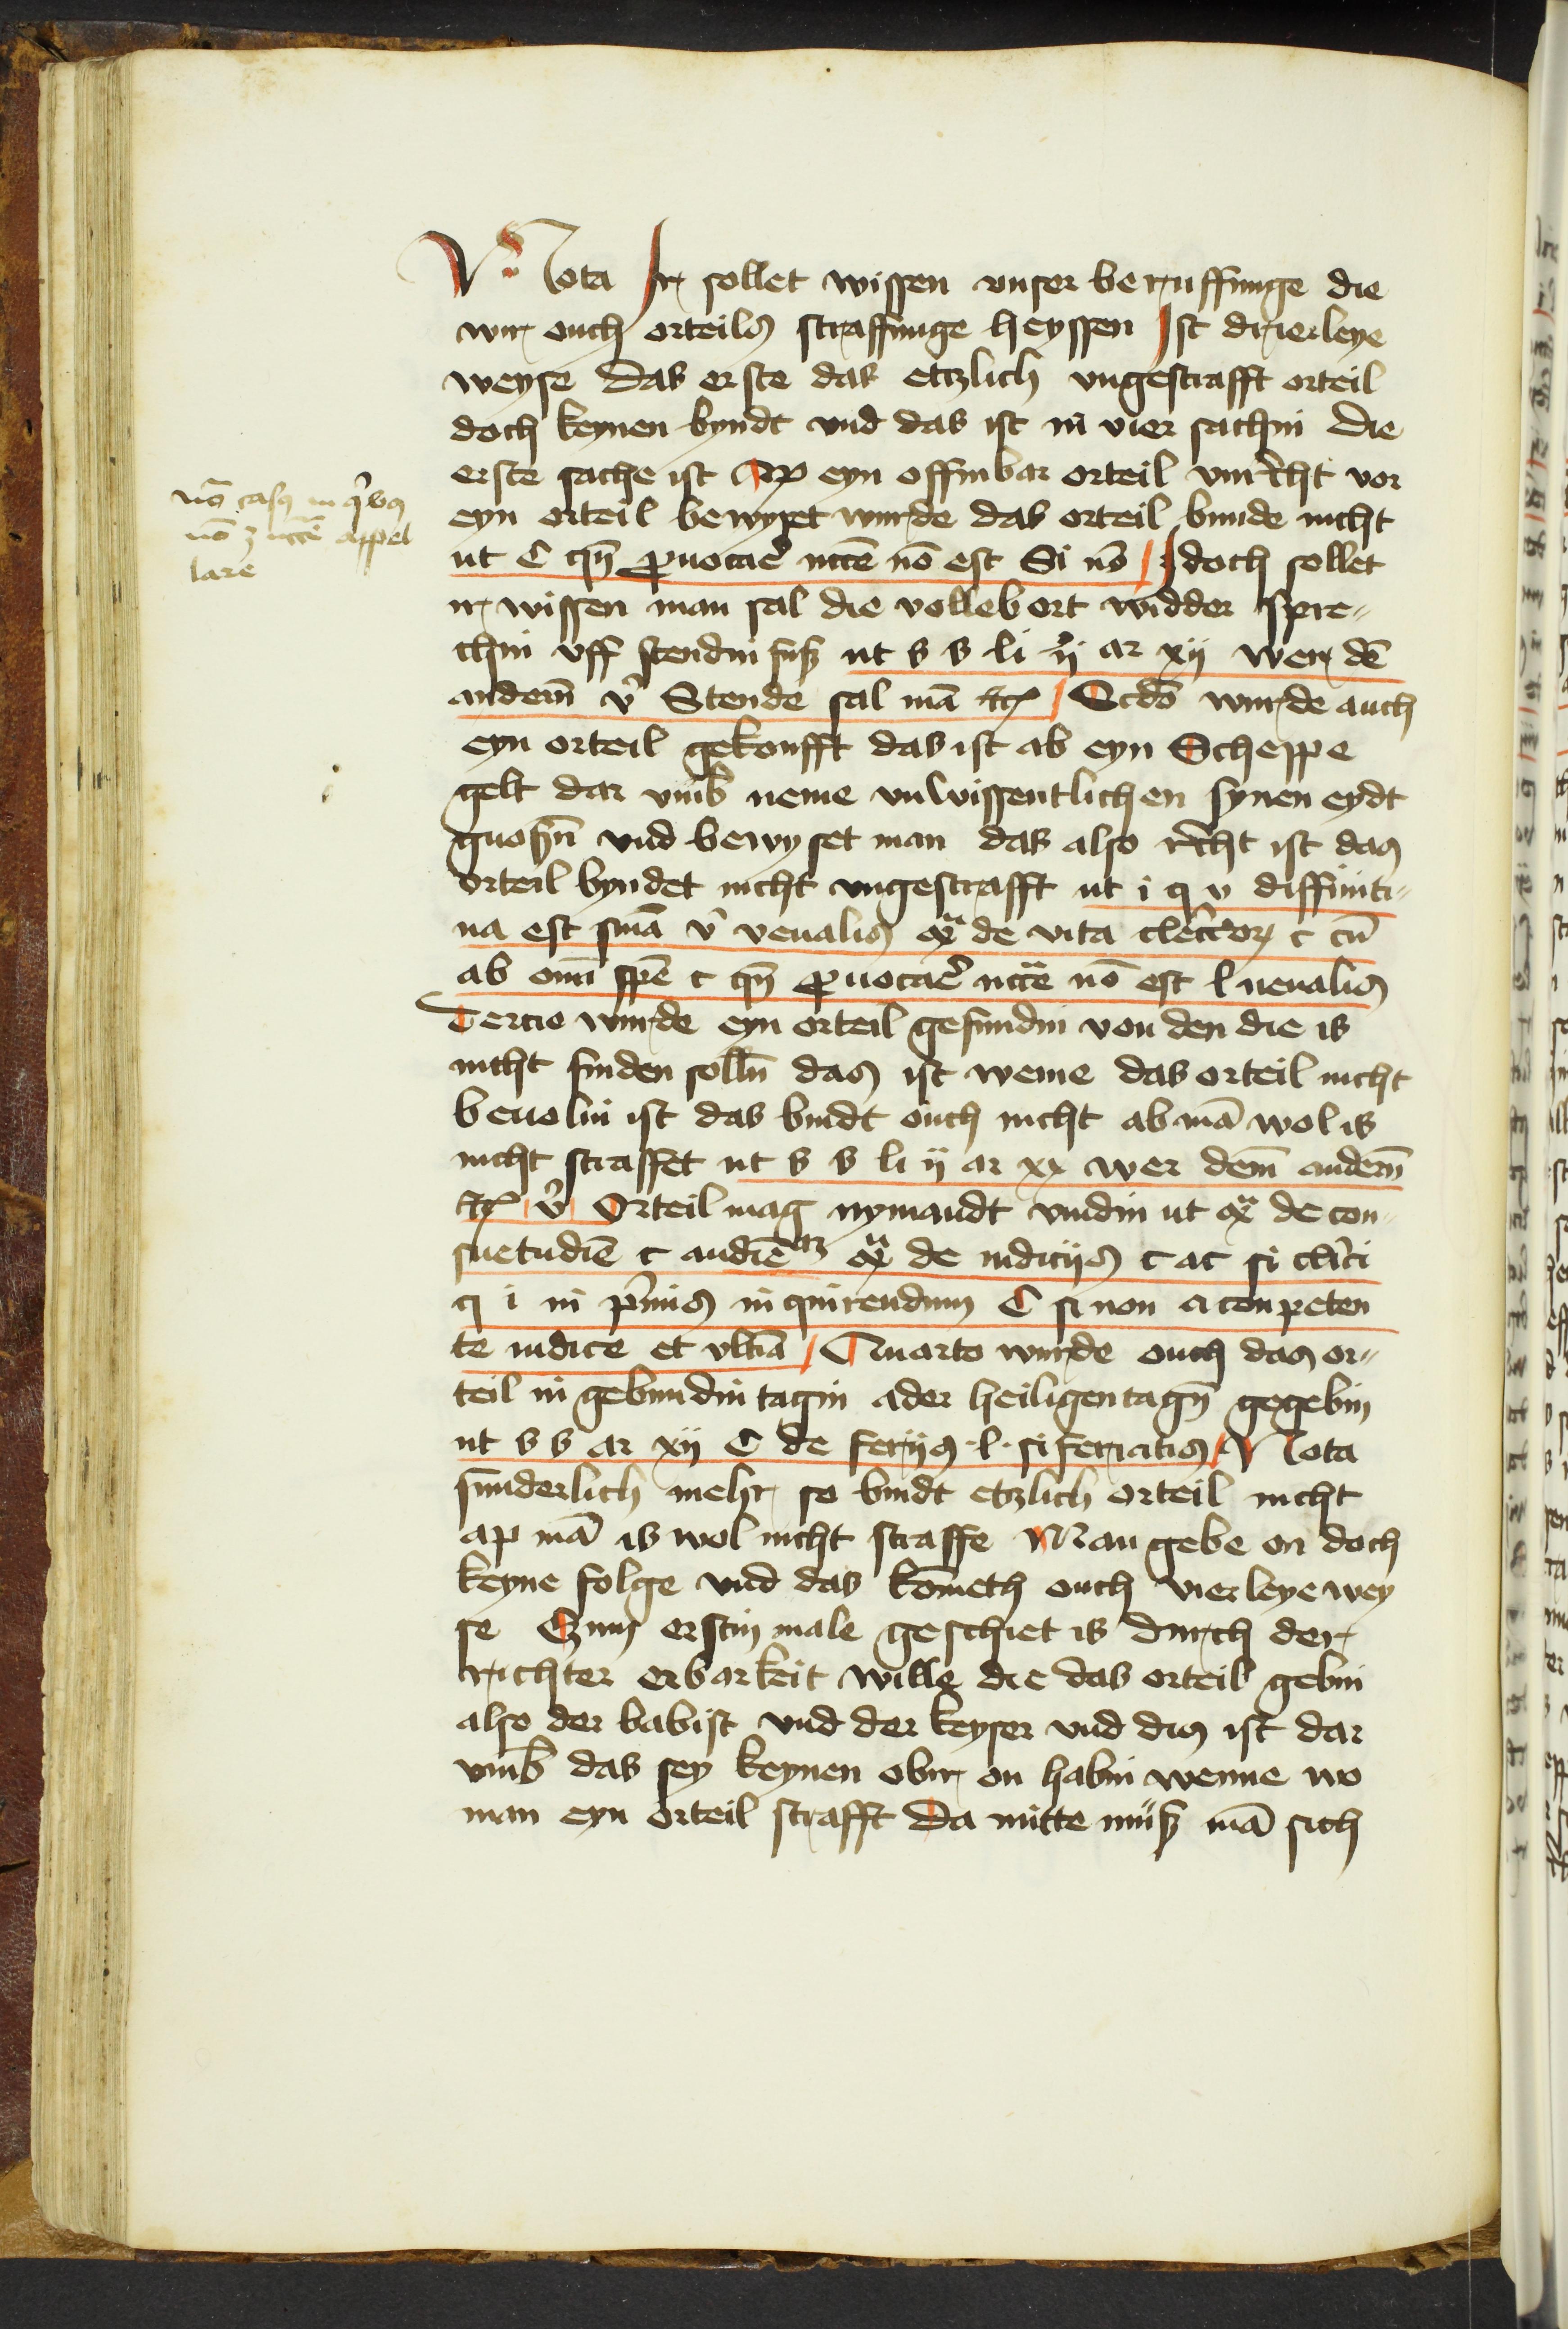 Nota Ir sollet wissen unser beruffunge die
wir ouch orteils straffunge heyssen Ist drierleye
weyse Das erste das etzlich ungestrafft orteil
doch keynen byndt vnd das ist in vier sachin Die
erste sache ist Ap eyn offinbar orteil vnrecht vor
nō casꝰ in qͥbꝰ
nō ꝫ nccē appel
lare
eyn orteil bewyset wurde das orteil bunde nicht
ut C qn̄ ꝓuocaē nccē nō est Si nō Idoch sollet
ir wissen man sal die vollebort widder spre⸗
chin vff stendin fuß ut s s li ij ar xij wer dē
anderm̄ v̓ Stende sal mā ꝛc Scdō wurde auch
eyn orteil gekoufft das ist ab eyn Scheppe
gelt dar vmb̄ neme vnwissentlichen synen eydt
vnd bewyset man das also recht ist das
orteil byndet nicht ungestrafft ut i q v diffiniti⸗
ua est sniā v̓ venalis de vita clēcor c cū
ab om̄i spē c qn̄ ꝓuocaē nccē nō est l uenalis
Tercio wurde eyn orteil gefundin von den die is
nicht finden solln̄ das ist weme das orteil nicht
beuolin ist das bindt ouch nicht ab mā wol is
nicht straffet ut s s li ij ar xx wer dem̄ anderm̄
ꝛc v̓ Orteil mag nymandt vindin ut de con⸗
suetudīe c audīe de iudicijs c at si clīci
q i in pͥmis in quirendum C si non a conpeten
te iudice et vltīa Quarto wurde ouch das or⸗
teil in gebundin tagin ader heiligen tagn̄ gegebin
ut s s ar xij C de ferijs l si feriatis Nota
sunderlich mehr so bindt etzlich orteil nicht
ap mā is wol nicht straffe Man gebe on doch
keyne folge vnd das kōmeth ouch vierleye wey
se Czum erstin male geschiet is durch der
richter erbarkeit wille die das orteil gebin
also der babist vnd der keyser vnd dis ist dar
vmb̄ das sey keynen obir on habin wenne wo
man eyn orteil strafft Da mitte muß mā sich